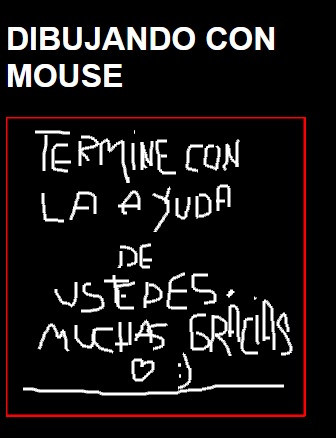 DIBUJANDO CON
MOUSE
TERMINE CON
LA AYUDA
DE
USTEDES.
MUCHAS GRACIAS
♡ :)